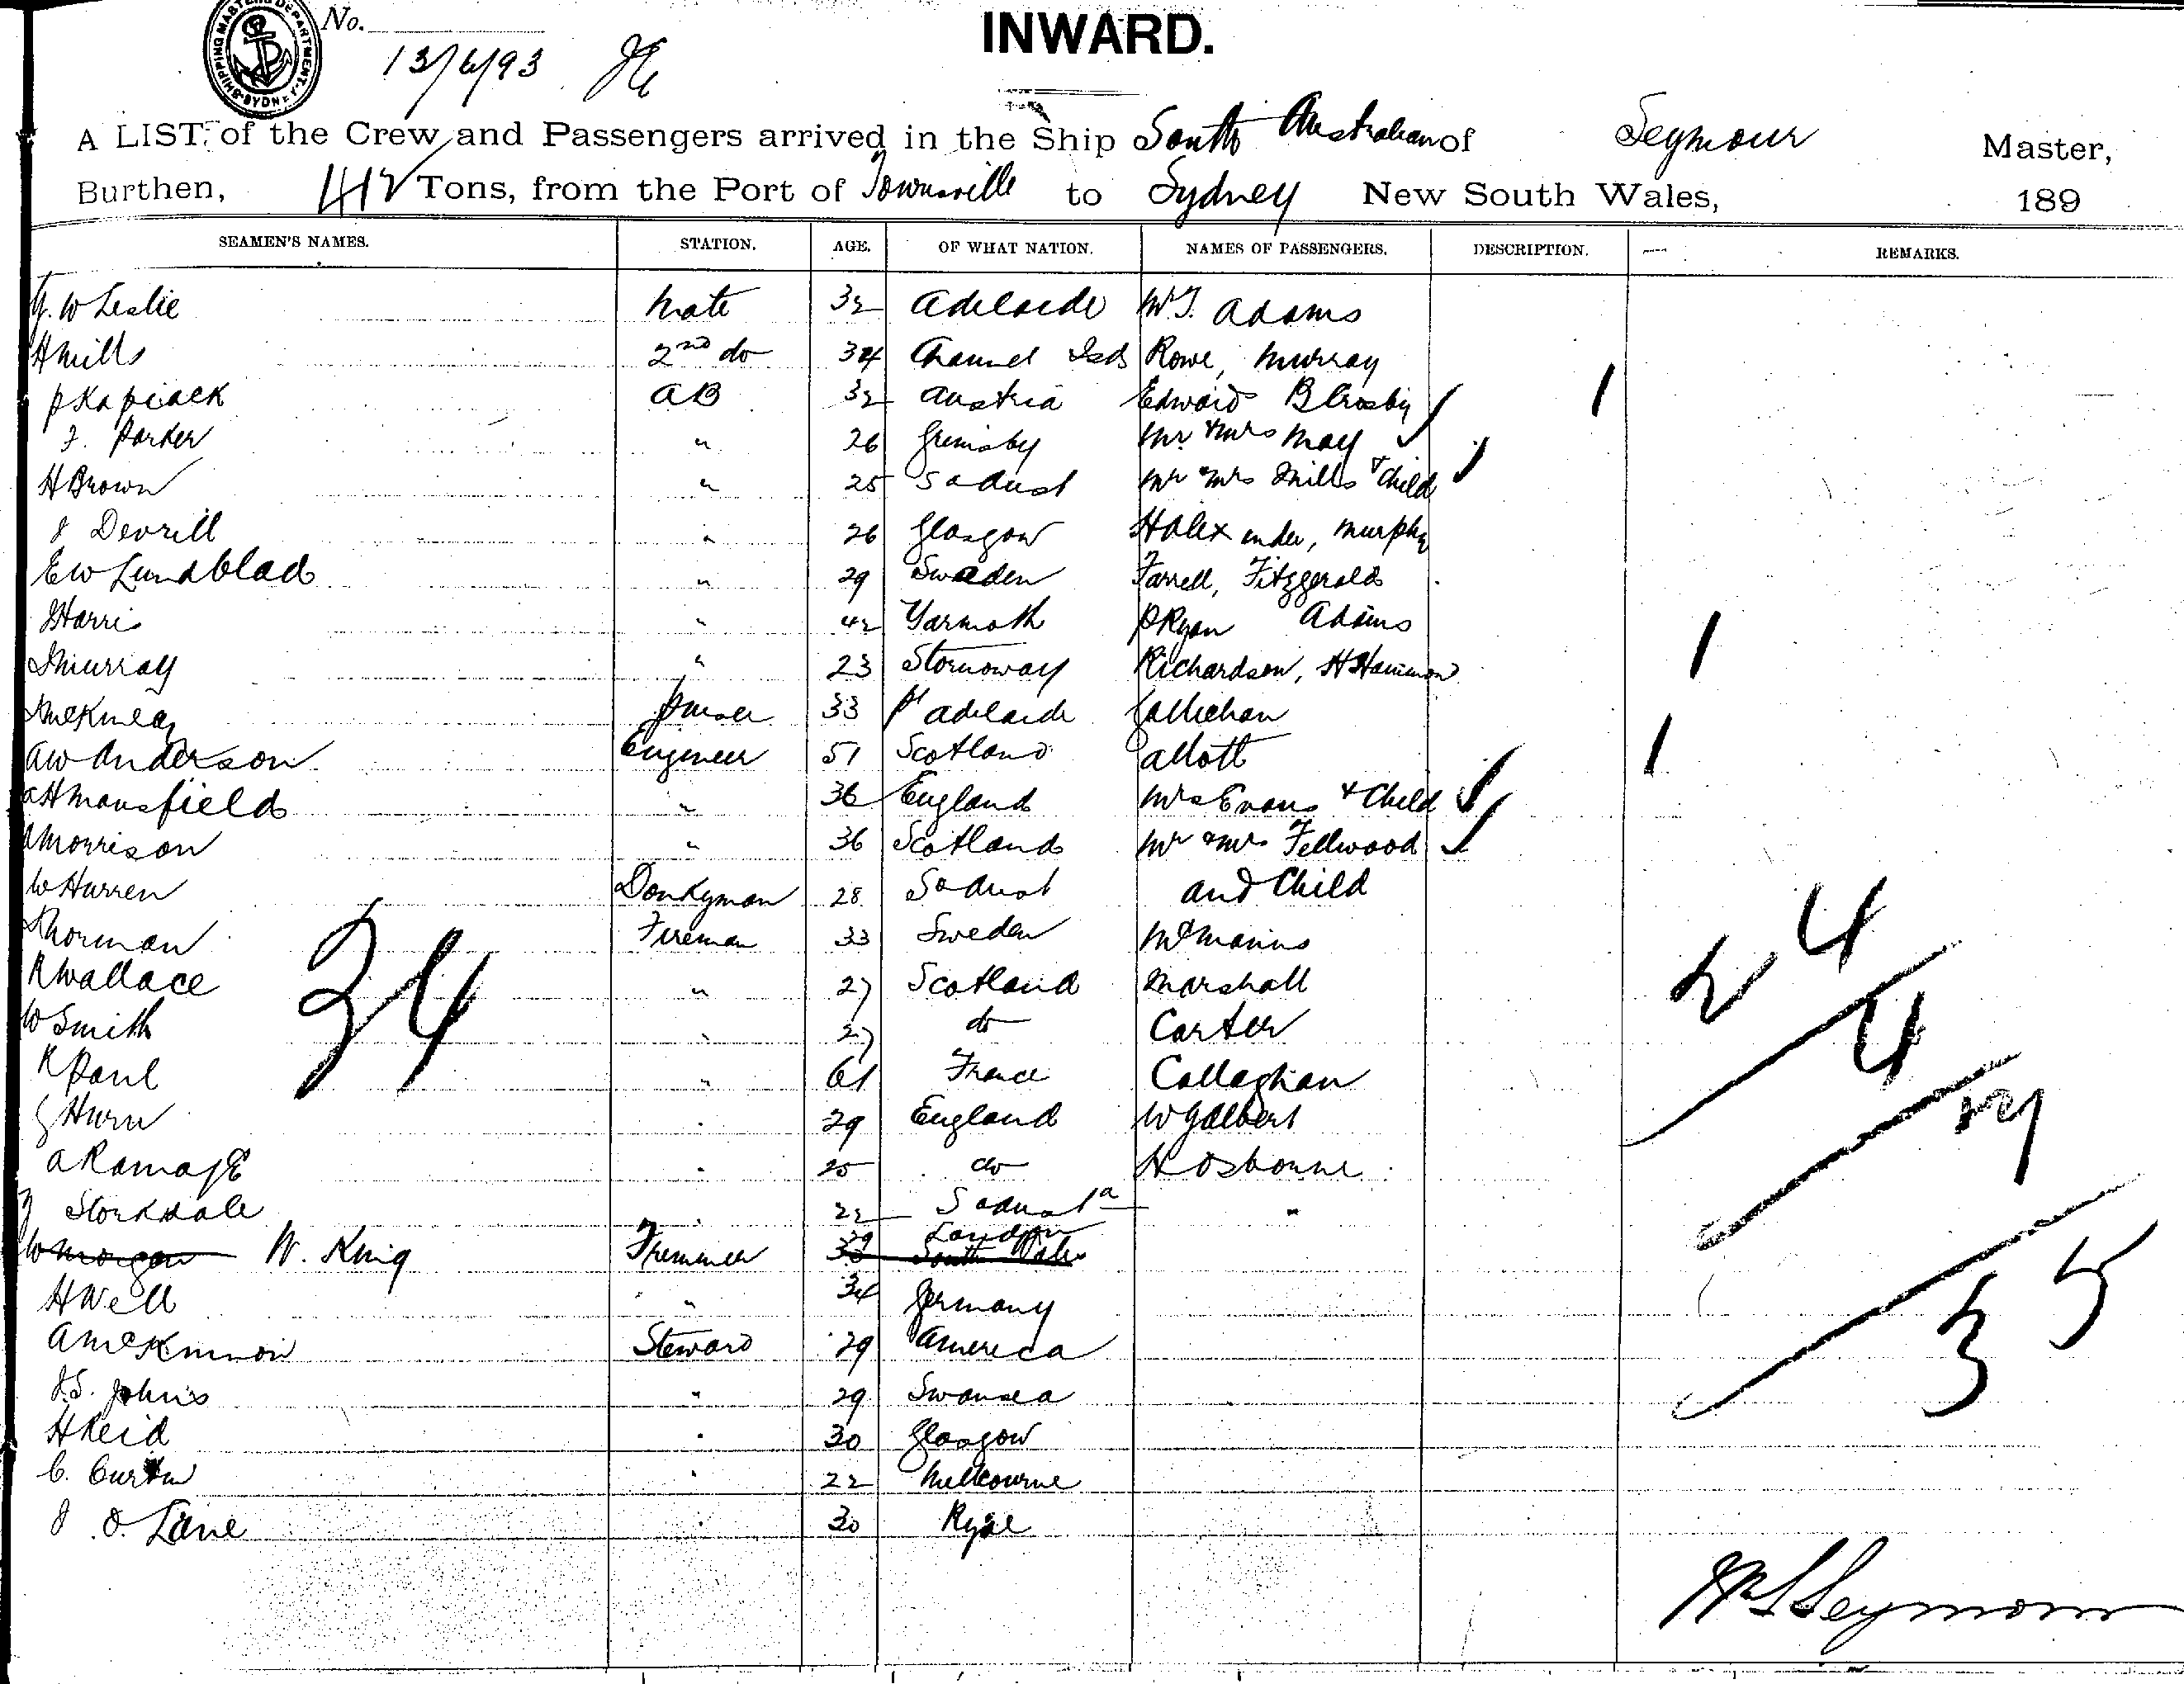 SHIPPING MASTERS DEPARTMENT. SYDNEY
No.
13/6/93
INWARD.
A LIST of the Crew and Passengers arrived in the Ship South Australian of Seymour Master,
Burthen, 412 Tons, from the Port of Townsville to Sydney New South Wales, 189
SEAMEN'S NAMES. STATION. AGE. OF WHAT NATION. NAMES OF PASSENGERS. DESCRIPTION. REMARKS.
W Leslie Mate 32 Adelaide Mr J. Adams
H Mills 2nd do 34 Channel Isds Rowe, Murray
P Kapiack AB 32 Austria Edward B Crosby 1
J. Parker " 26 Grimsby Mr & Mrs May
H Brown " 25 S Aust Mr & Mrs Mills & Child
J Devrill " 26 Glasgow H Alexander, Murphy
E W Lundblad " 29 Sweden Farrell, Fitzgerald
J Harris " 42 Yarmoth P Ryan Adams
Murray " 23 Stornoway Richardson, H Hammon 1
Purser 33 Pt Adelaide Callichan
A W Anderson Engineer 51 Scotland Allott 1
A H Mansfield " 36 England Mrs Evans & Child
Morrison " 36 Scotland Mr & Mrs Fellwood
W Harren Donkyman 28 So Aust and Child
Norman Fireman 33 Sweden McManus
R Wallace " 27 Scotland Marshall
W Smith " 27 do Carter
R Paul " 61 France Callaghan
G Hurn " 29 England W Gilbert
A Ramage " 25 do H Osborne
Stockdale " 22 S Aust
W Morgan W. King Trimmer 29 London South Wales
H Well " 34 Germany
A McKinnon Steward 29 America
J.S. Johns " 29 Swansea
H Reid " 30 Glasgow
C. Curtin " 22 Melbourne
J. O. Lane " 30 Ryde
24
4
4
35
Seymour